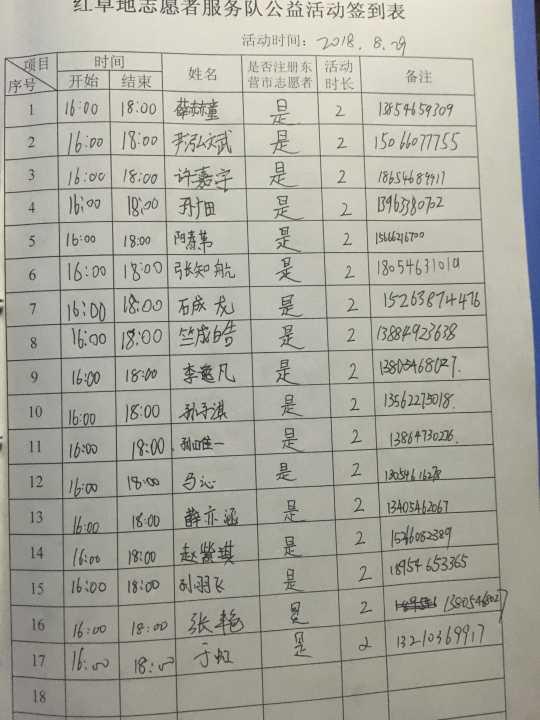 红草地志愿者服务队公益活动签到表
活动时间: 2018.8.29
项目 序号 时间 开始 结束 姓名 是否注册东营市志愿者 活动时长 备注
1 16:00 18:00 是 2 13854659309
2 16:00 18:00 尹泓文武 是 2 15066077755
3 16:00 18:00 许嘉宇 是 2 18654689917
4 16:00 18:00 孙田 是 2 13963380702
5 16:00 18:00 是 2 15666216700
6 16:00 18:00 张知航 是 2 18054631019
7 16:00 18:00 石成龙 是 2 15263874476
8 16:00 18:00 竺成皓 是 2 13884923638
9 16:00 18:00 李逸凡 是 2 13805468027.
10 16:00 18:00 孙子淇 是 2 13562275018.
11 16:00 18:00. 是 2 13864730226.
12 16:00 18:00 马沁 是 2
13 16:00 18:00 薛亦涵 是 2 13405462067
14 16:00 18:00 赵紫琪 是 2 15246082389
15 16:00 18:00 刘羽飞 是 2 18954653365
16 16:00 18:00 张艳 是 2 13805468027
17 16:00 18:00 于虹 是 2 13210369917
18